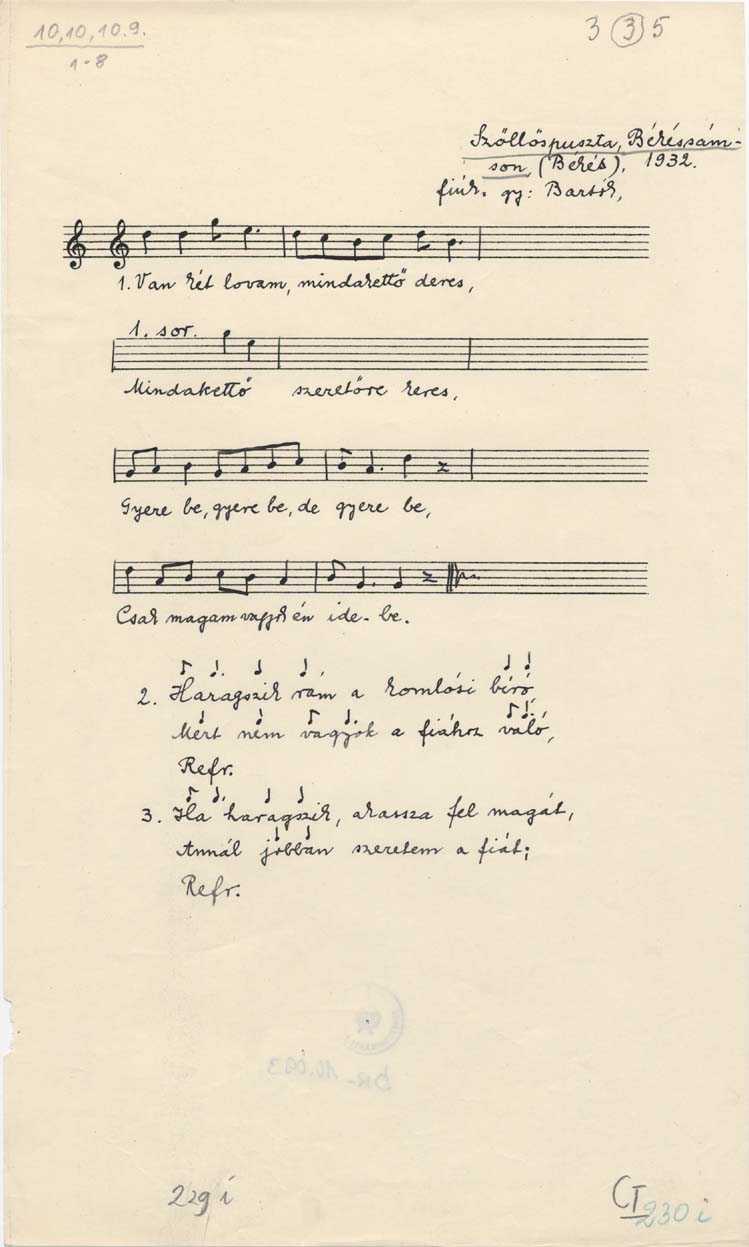 10,10,10.9.
1-8
3 3 5
Szőllőspuszta, Békéssám-
son, (Békés), 1932.
fiúk. gy: Bartók,
1. Van két lovam, mindakettő deres,
1. sor.
Mindakettő szeretőre keres,
Gyere be, gyere be, de gyere be,
Csak magam vagyok én ide-be.
2. Haragszik rám a komlósi bíró,
Mért nem vagyok a fiához való,
Refr.
3. Ha haragszik, akassza fel magát,
Annál jobban szeretem a fiát;
Refr.
BR-10.093
229 i
CI
230 i